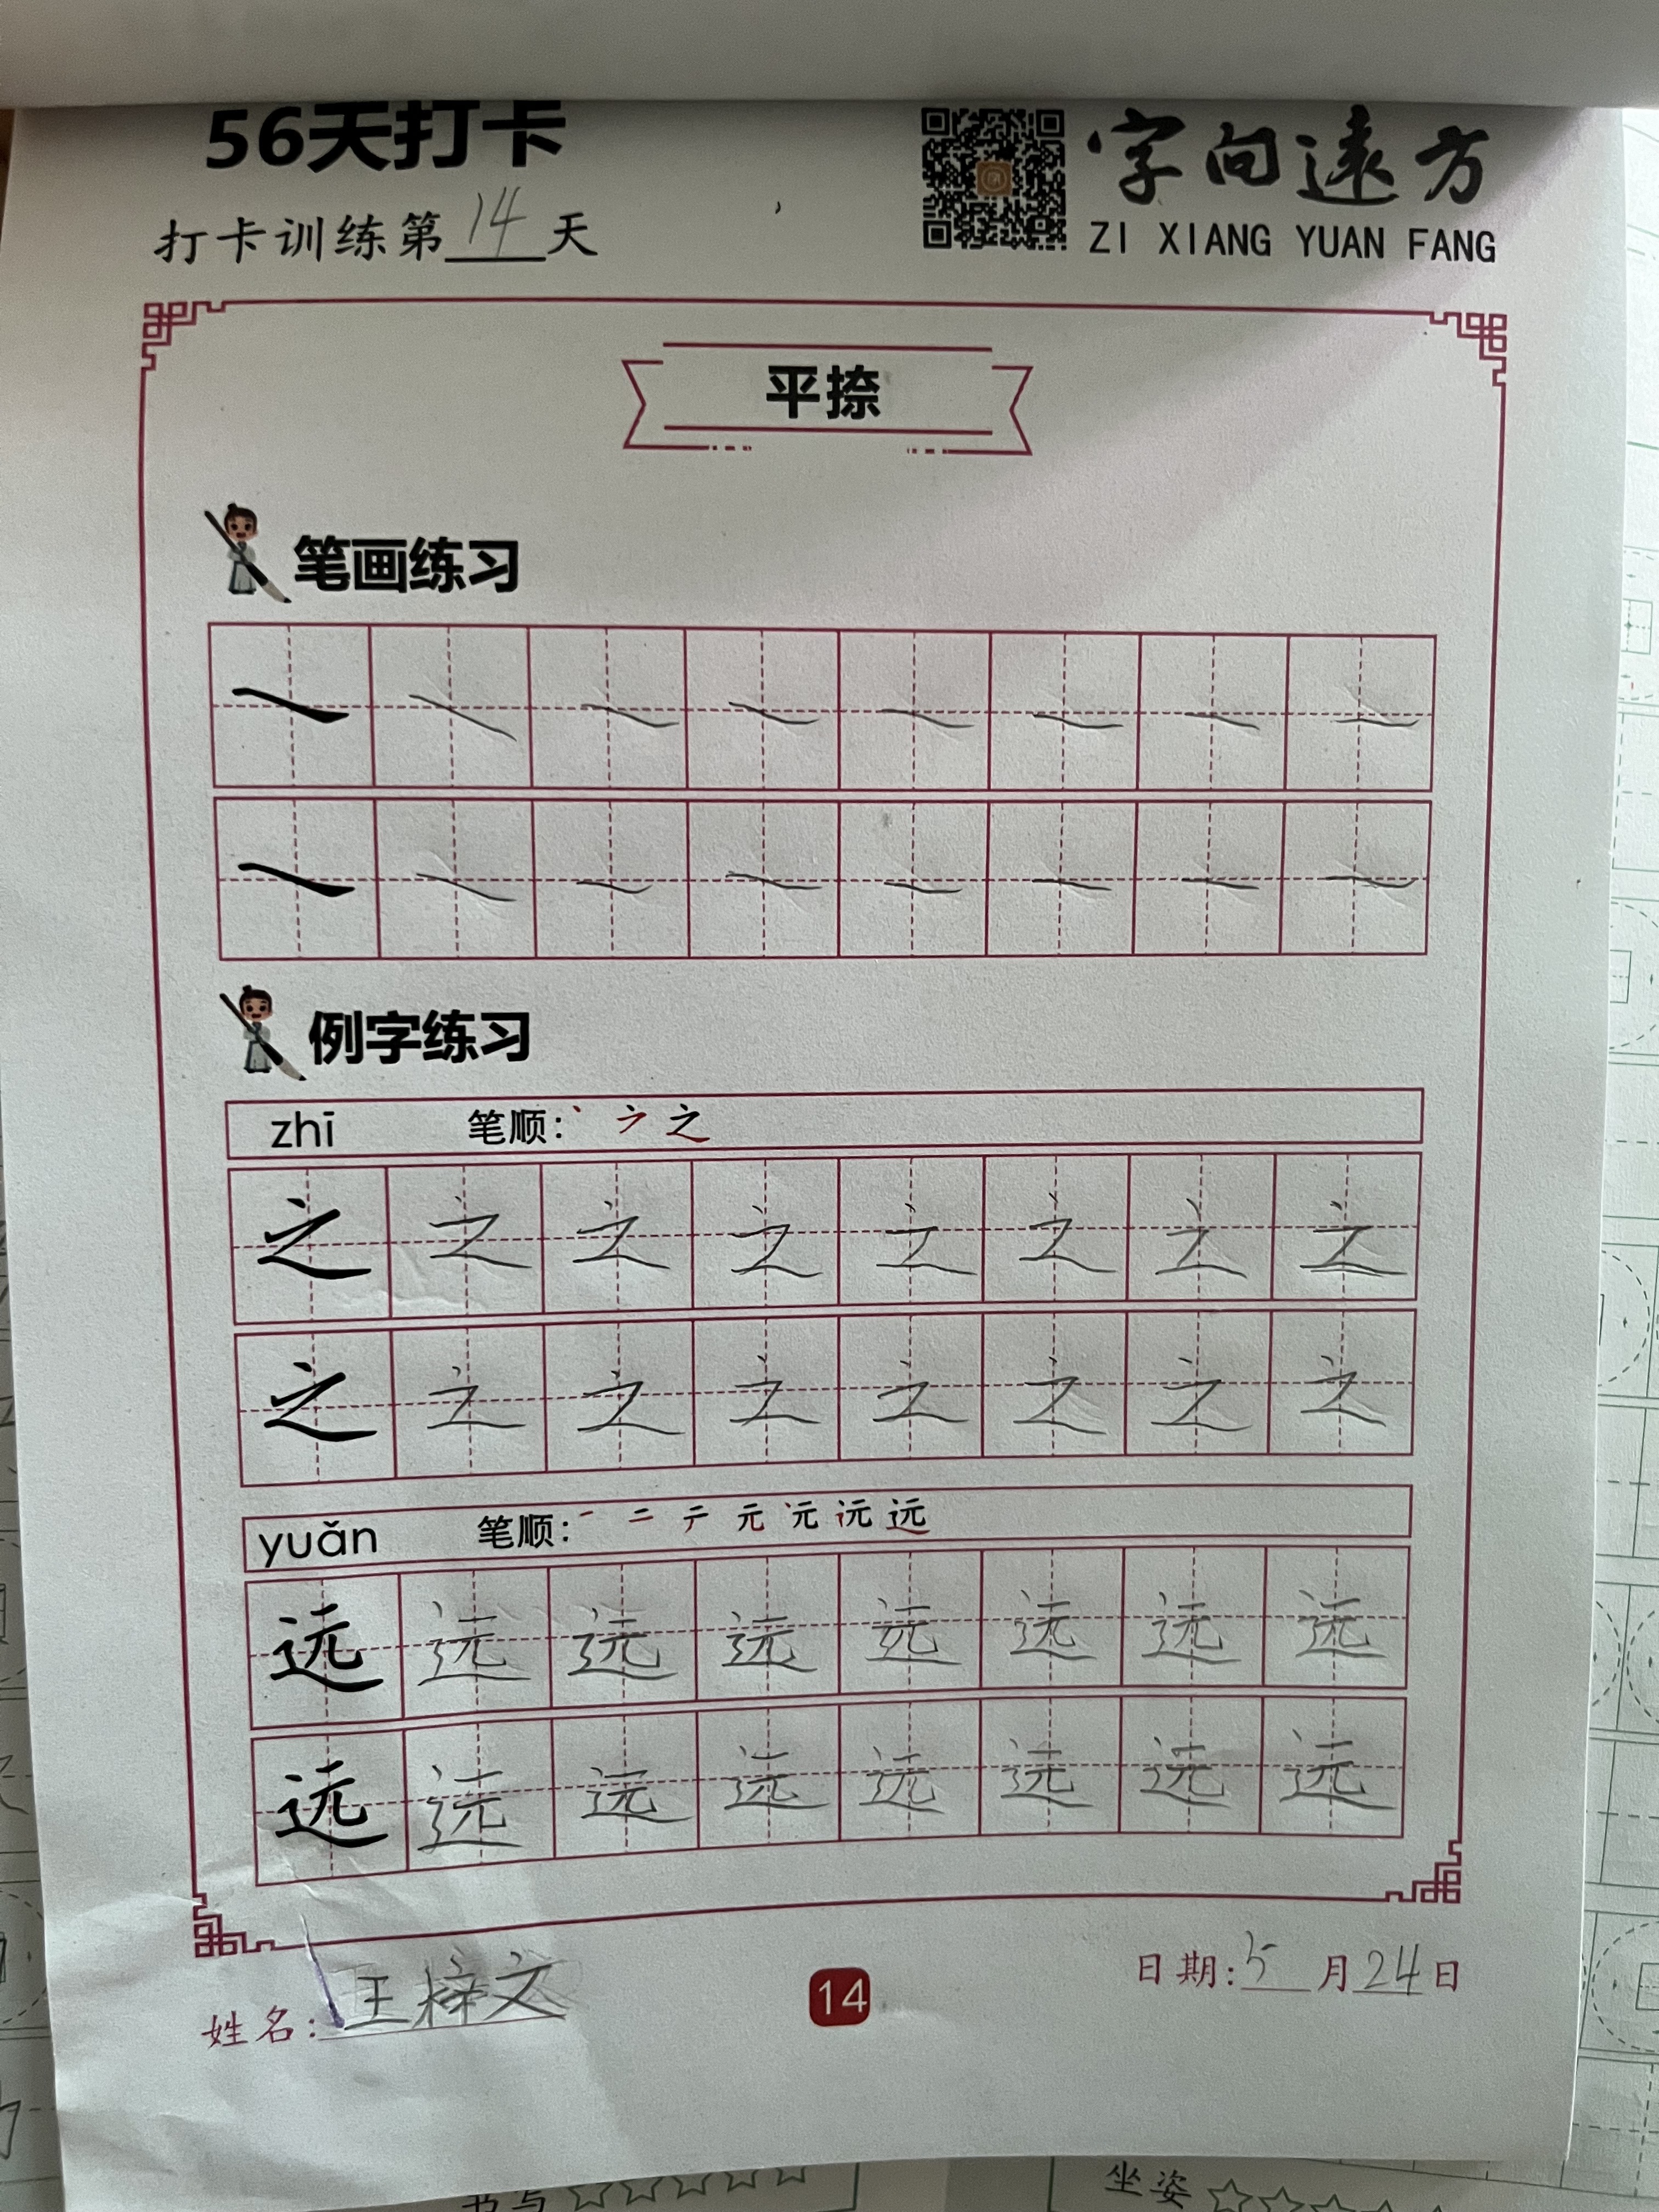 56天打卡
打卡训练第14天
字向遠方
ZI XIANG YUAN FANG
平捺
笔画练习
例字练习
zhī 笔顺: 丶 之
之 之 之 之 之 之 之 之
之 之 之 之 之 之 之 之
yuǎn 笔顺: 一 二 テ 元 远
远 远 远 远 远 远 远 远
远 远 远 远 远 远 远 远
姓名: 王梓文
14
日期: 5月24日
书写
坐姿